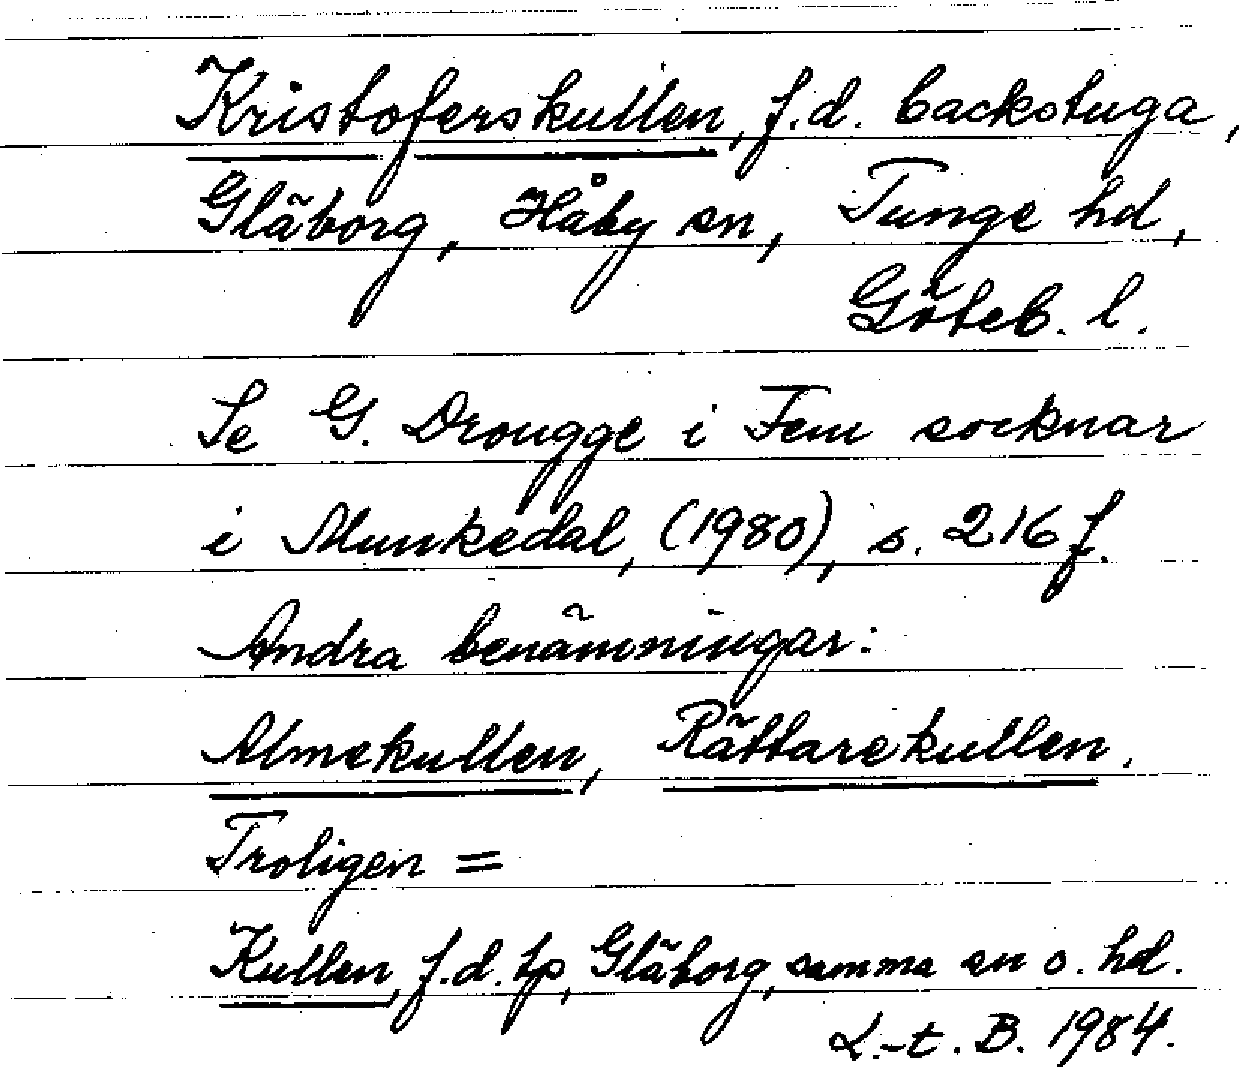 Kristoferskullen, f.d. backstuga,
Gläborg, Håby sn, Tunge hd,
Göteb. l.
Se G. Drougge i Fem socknar
i Munkedal, (1980), s. 216 f.
Andra benämningar:
Almekullen, Rättarekullen.
Troligen =
Kullen, f.d. tp, Gläborg, samma sn o. hd.
L.-t. B. 1984.